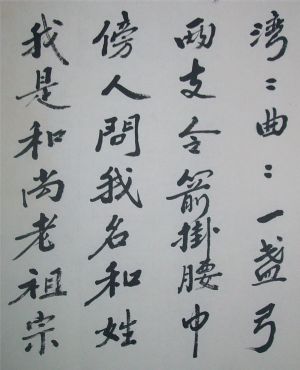 湾〻曲〻一盏弓
两支令箭掛腰中
傍人問我名和姓
我是和尚老祖宗